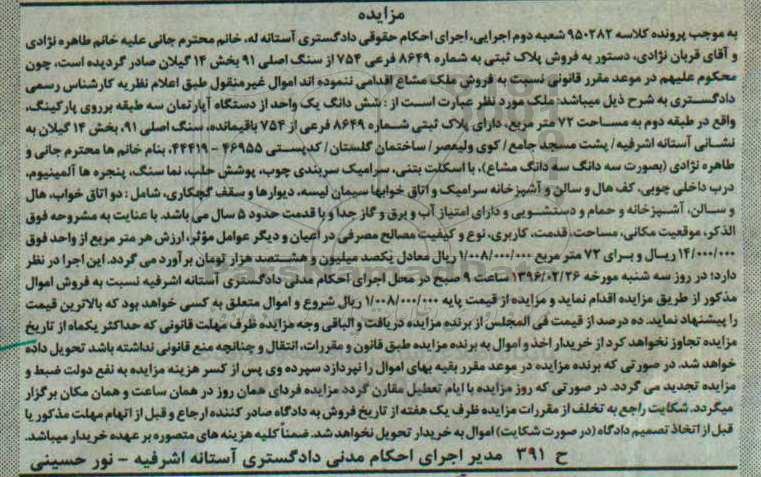 مزایده
به موجب پرونده کلاسه ۹۵۰۲۸۲ شعبه دوم اجرایی، اجرای احکام حقوقی دادگستری آستانه له، خانم محترم جانی علیه خانم طاهره نژادی
و آقای قربان نژادی، دستور به فروش پلاک ثبتی به شماره ۸۶۴۹ فرعی ۷۵۴ از سنگ اصلی ۹۱ بخش ۱۴ گیلان صادر گردیده است، چون
محکوم علیهم در موعد مقرر قانونی نسبت به فروش ملک مشاع اقدامی ننموده اند اموال غیرمنقول طبق اعلام نظریه کارشناس رسمی
دادگستری به شرح ذیل میباشد: ملک مورد نظر عبارت است از: شش دانگ یک واحد از دستگاه آپارتمان سه طبقه برروی پارکینگ،
واقع در طبقه دوم به مساحت ۷۲ متر مربع، دارای پلاک ثبتی شماره ۸۶۴۹ فرعی از ۷۵۴ باقیمانده، سنگ اصلی ۹۱، بخش ۱۴ گیلان به
نشانی آستانه اشرفیه/ پشت مسجد جامع/ کوی ولیعصر/ ساختمان گلستان/ کدپستی ۴۶۹۵۵ - ۴۴۴۱۹، بنام خانم ها محترم جانی و
طاهره نژادی (بصورت سه دانگ سه دانگ مشاع)، با اسکلت بتنی، سرامیک سربندی چوب، پوشش حلب، نما سنگ، پنجره ها آلمینیوم،
درب داخلی چوبی، کف هال و سالن و آشپزخانه سرامیک و اتاق خوابها سیمان لیسه، دیوارها و سقف گچکاری، شامل: دو اتاق خواب، هال
و سالن، آشپزخانه و حمام و دستشویی و دارای امتیاز آب و برق و گاز جدا و با قدمت حدود ۵ سال می باشد. با عنایت به مشروحه فوق
الذکر، موقعیت مکانی، مساحت، قدمت، کاربری، نوع و کیفیت مصالح مصرفی در اعیان و دیگر عوامل مؤثر، ارزش هر متر مربع از واحد فوق
۱۴/۰۰۰/۰۰۰ ریال و برای ۷۲ متر مربع ۱/۰۰۸/۰۰۰/۰۰۰ ریال معادل یکصد میلیون و هشتصد هزار تومان برآورد می گردد. این اجرا در نظر
دارد؛ در روز سه شنبه مورخه ۱۳۹۶/۰۲/۲۶ ساعت ۹ صبح در محل اجرای احکام مدنی دادگستری آستانه اشرفیه نسبت به فروش اموال
مذکور از طریق مزایده اقدام نماید و مزایده از قیمت پایه ۱/۰۰۸/۰۰۰/۰۰۰ ریال شروع و اموال متعلق به کسی خواهد بود که بالاترین قیمت
را پیشنهاد نماید. ده درصد از قیمت فی المجلس از برنده مزایده دریافت و الباقی وجه مزایده ظرف مهلت قانونی که حداکثر یکماه از تاریخ
مزایده تجاوز نخواهد کرد از خریدار اخذ و اموال به برنده مزایده طبق قانون و مقررات، انتقال و چنانچه منع قانونی نداشته باشد تحویل داده
خواهد شد. در صورتی که برنده مزایده در موعد مقرر بقیه بهای اموال را نپردازد سپرده وی پس از کسر هزینه مزایده به نفع دولت ضبط و
مزایده تجدید می گردد. در صورتی که روز مزایده با ایام تعطیل مقارن گردد مزایده فردای همان روز در همان ساعت و همان مکان برگزار
میگردد. شکایت راجع به تخلف از مقررات مزایده ظرف یک هفته از تاریخ فروش به دادگاه صادر کننده ارجاع و قبل از اتهام مهلت مذکور یا
قبل از اتخاذ تصمیم دادگاه (در صورت شکایت) اموال به خریدار تحویل نخواهد شد. ضمناً کلیه هزینه های متصوره بر عهده خریدار میباشد.
ح ۳۹۱ مدیر اجرای احکام مدنی دادگستری آستانه اشرفیه - نور حسینی